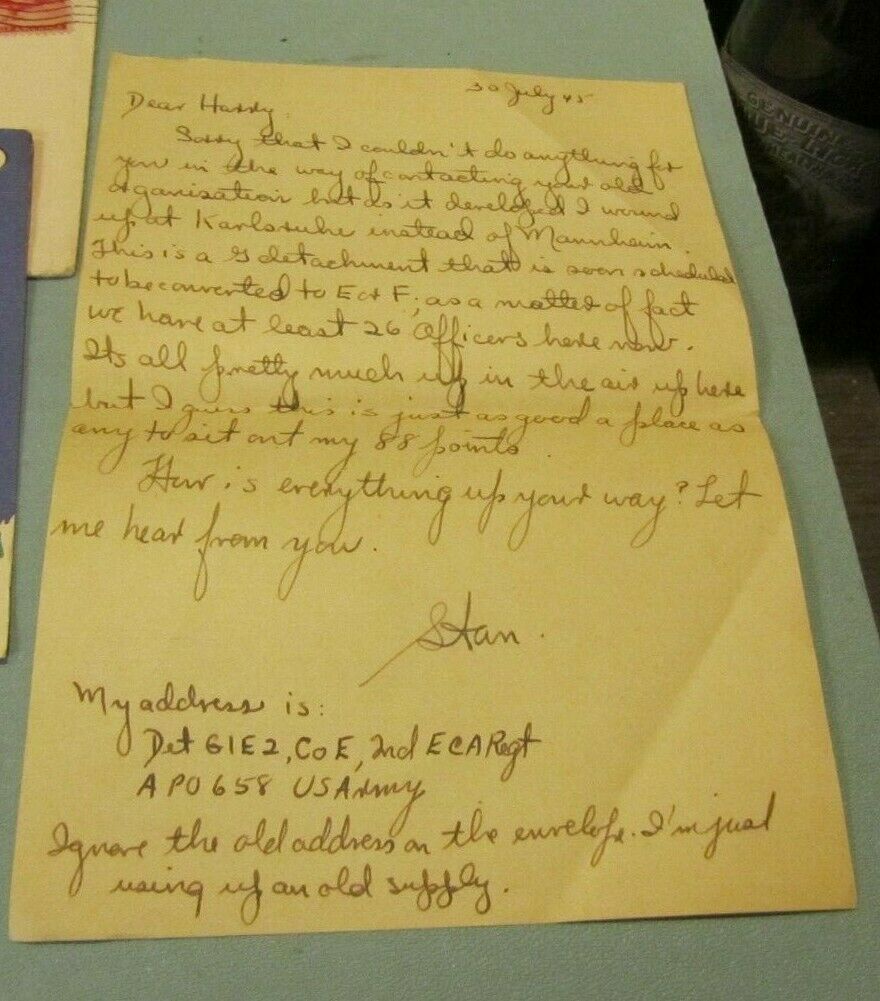 30 July 45
Dear Harry,
Sorry that I couldn't do anything for
you in the way of contacting your old
organization but as it developed I wound
up at Karlsruhe instead of Mannheim.
This is a G detachment that is soon scheduled
to be converted to E or F; as a matter of fact
we have at least 26 Officers here now.
Its all pretty much up in the air up here
but I guess this is just as good a place as
any to sit out my 88 points.
How is everything up your way? Let
me hear from you.
Stan.
My address is:
Det G1E2, Co E, 2nd ECA Regt
APO 658 US Army
Ignore the old address on the envelope. I'm just
using up an old supply.
GENUINE